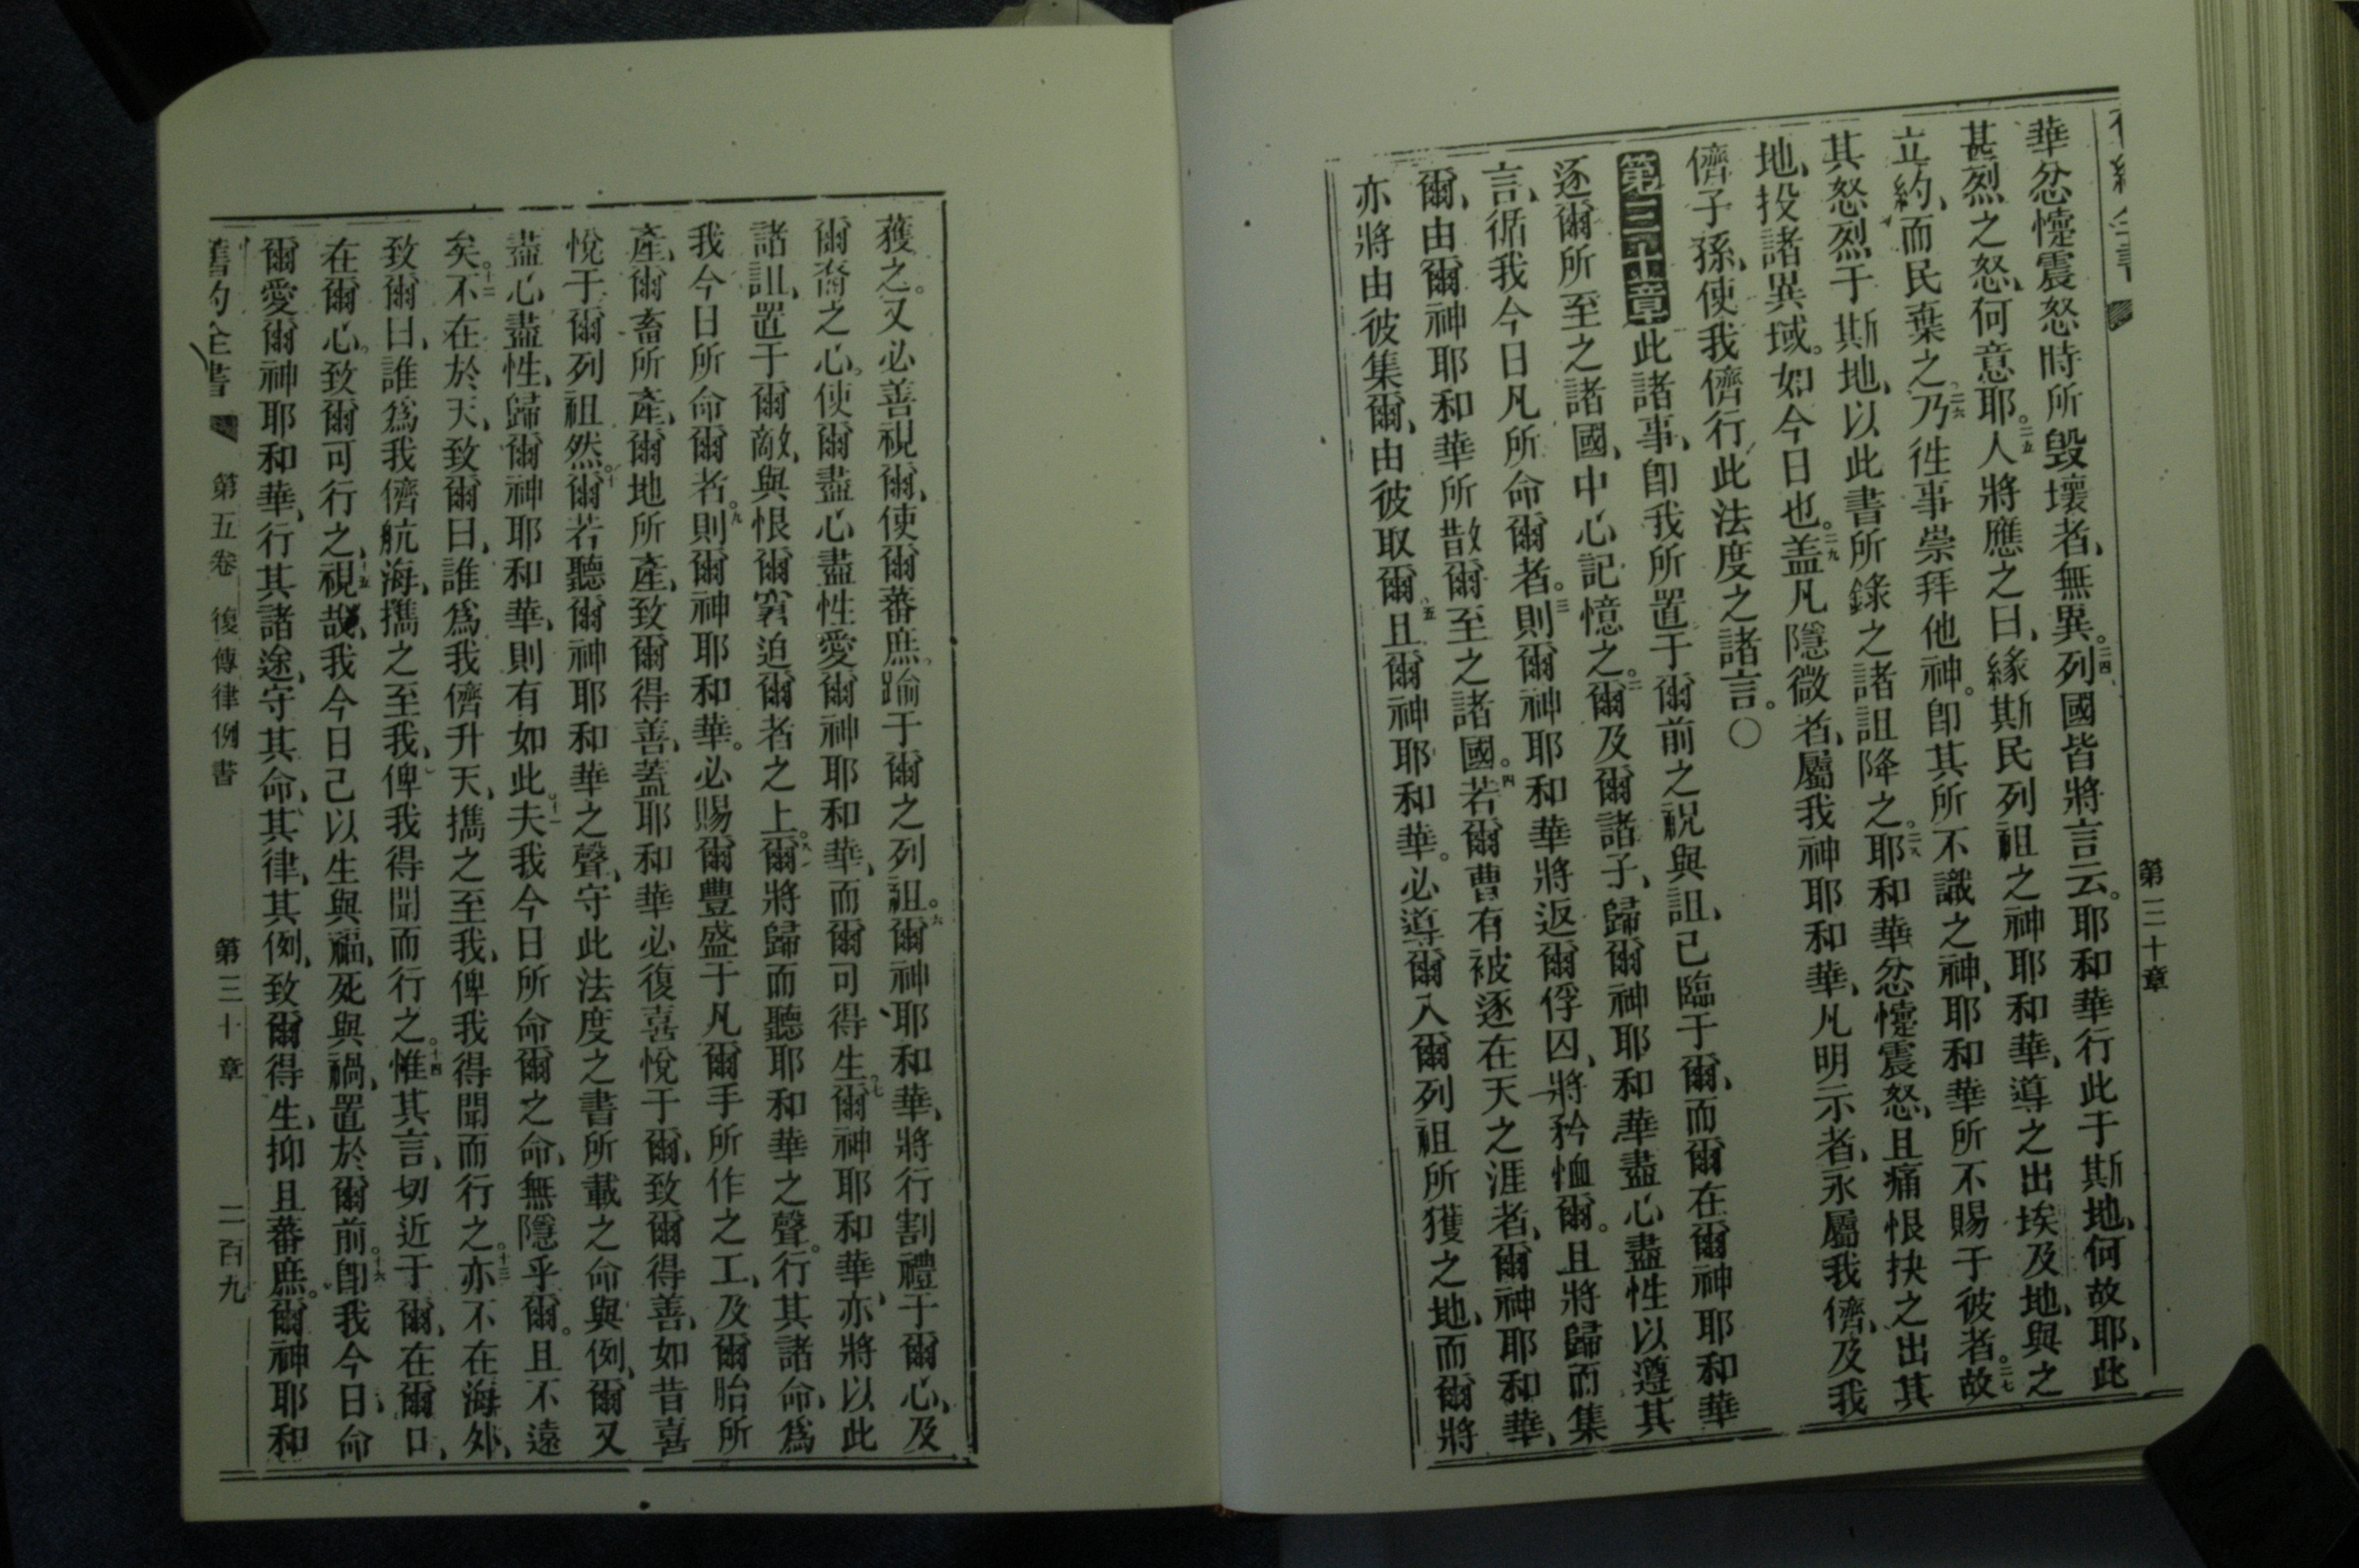 第三十章
華忿懥震怒時所毀壞者、無異。二四列國皆將言云。耶和華行此于斯地、何故耶、此
甚烈之怒、何意耶。二五人將應之曰、緣斯民列祖之神耶和華、導之出埃及地、與之
立約、而民棄之、二六乃徃事崇拜他神。卽其所不識之神、耶和華所不賜于彼者。二七故
其怒烈于斯地、以此書所錄之諸詛降之。二八耶和華忿懥震怒、且痛恨抉之出其
地、投諸異域。如今日也。二九盖凡隱微者、屬我神耶和華、凡明示者、永屬我儕、及我
儕子孫、使我儕行此法度之諸言。〇
第三十章此諸事、卽我所置于爾前之祝與詛、已臨于爾、而爾在爾神耶和華
逐爾所至之諸國、中心記憶之。二爾及爾諸子、歸爾神耶和華盡心盡性以遵其
言、循我今日凡所命爾者。三則爾神耶和華將返爾俘囚、將矜恤爾。且將歸而集
爾、由爾神耶和華所散爾至之諸國。四若爾曹有被逐在天之涯者、爾神耶和華、
亦將由彼集爾、由彼取爾、五且爾神耶和華。必導爾入爾列祖所獲之地、而爾將
獲之。又必善視爾、使爾蕃庶、踰于爾之列祖。六爾神耶和華、將行割禮于爾心、及
爾裔之心。使爾盡心盡性愛爾神耶和華、而爾可得生。七爾神耶和華、亦將以此
諸詛、置于爾敵、與恨爾窘迫爾者之上。八爾將歸而聽耶和華之聲。行其諸命、爲
我今日所命爾者。九則爾神耶和華。必賜爾豐盛于凡爾手所作之工、及爾胎所
產、爾畜所產、爾地所產、致爾得善、蓋耶和華必復喜悅于爾、致爾得善、如昔喜
悅于爾列祖然。十爾若聽爾神耶和華之聲、守此法度之書所載之命與例、爾又
盡心盡性、歸爾神耶和華、則有如此、十一夫我今日所命爾之命、無隱乎爾。且不遠
矣。十二不在於天、致爾曰、誰爲我儕升天、擕之至我、俾我得聞而行之。十三亦不在海外、
致爾曰、誰爲我儕航海、擕之至我、俾我得聞而行之。十四惟其言、切近于爾、在爾口、
在爾心。致爾可行之、十五視哉、我今日己以生與福、死與禍、置於爾前。十六卽我今日命
爾愛爾神耶和華、行其諸途、守其命、其律、其例、致爾得生、抑且蕃庶。爾神耶和
舊約全書 第五卷 復傳律例書 第三十章 二百九